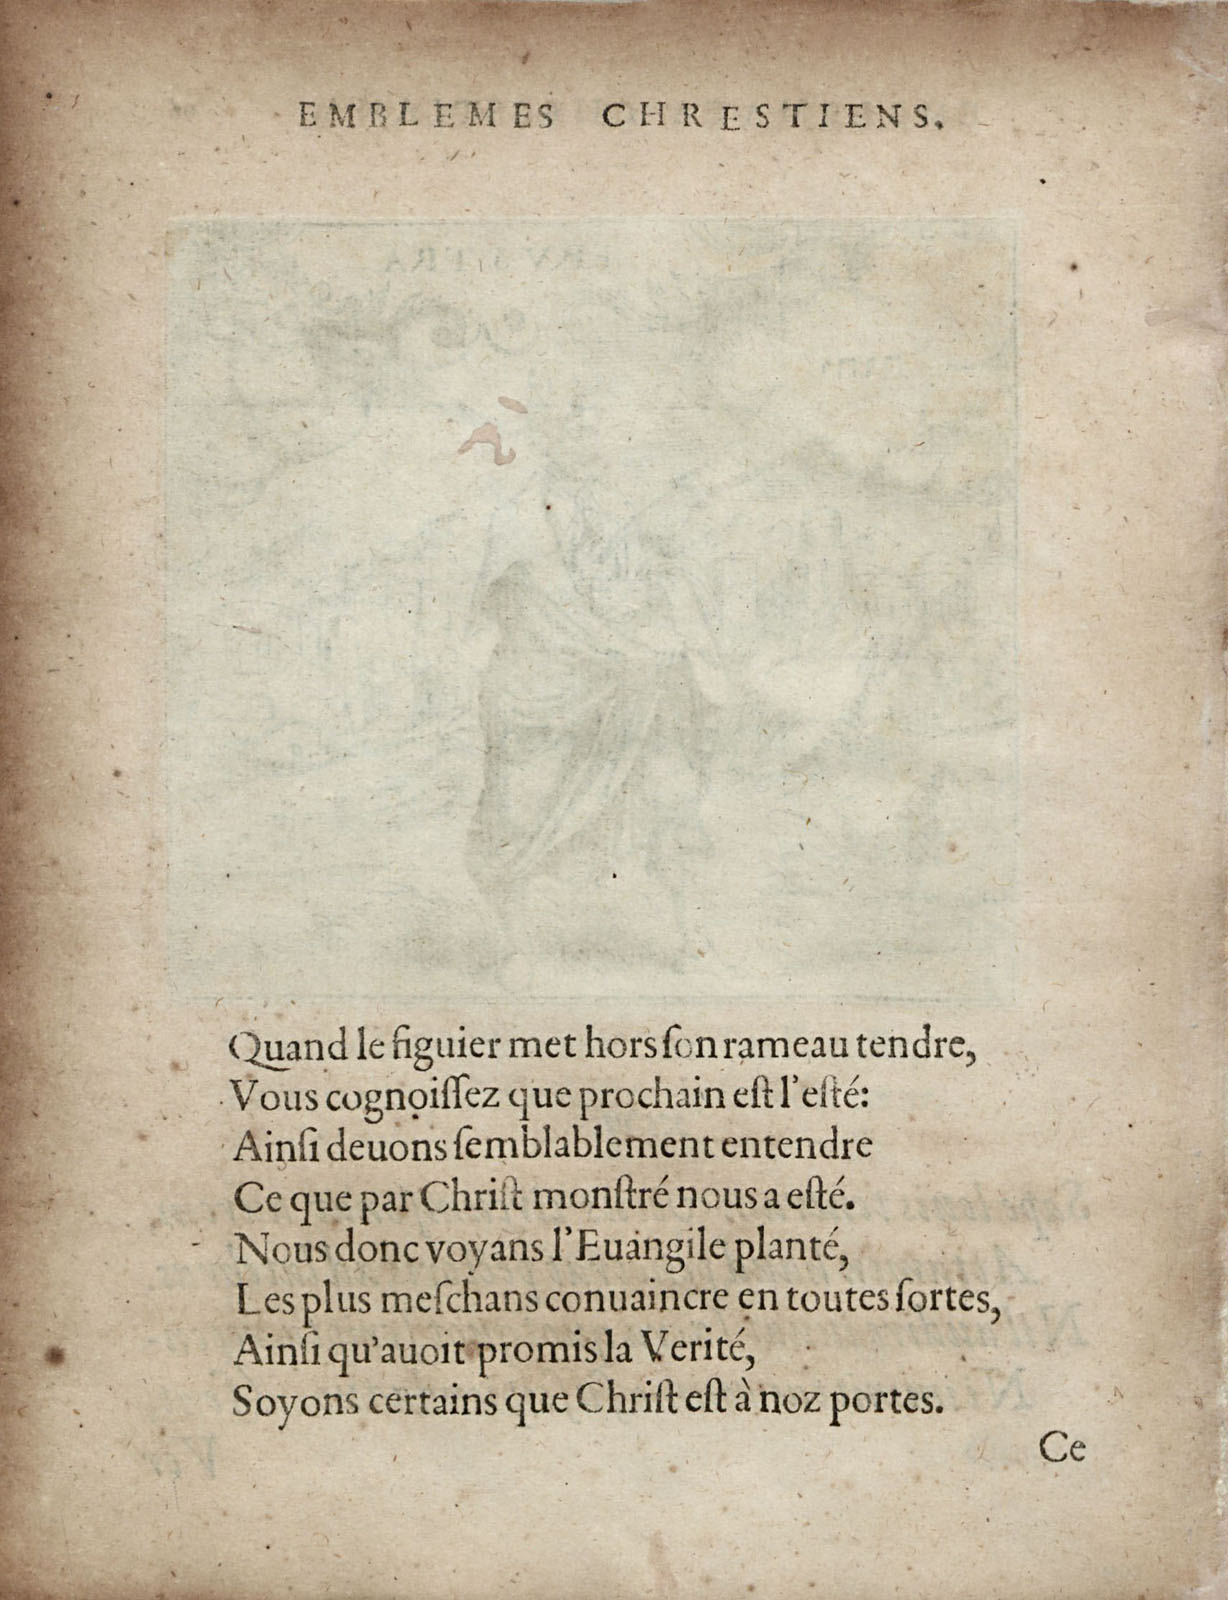 EMBLEMES CHRESTIENS.
Quand le figuier met hors ſon rameau tendre,
Vous cognoiſſez que prochain eſt l'eſté:
Ainſi deuons ſemblablement entendre
Ce que par Chriſt monſtré nous a eſté.
Nous donc voyans l'Euangile planté,
Les plus meſchans conuaincre en toutes ſortes,
Ainſi qu'auoit promis la Verité,
Soyons certains que Chriſt eſt à noz portes.
Ce